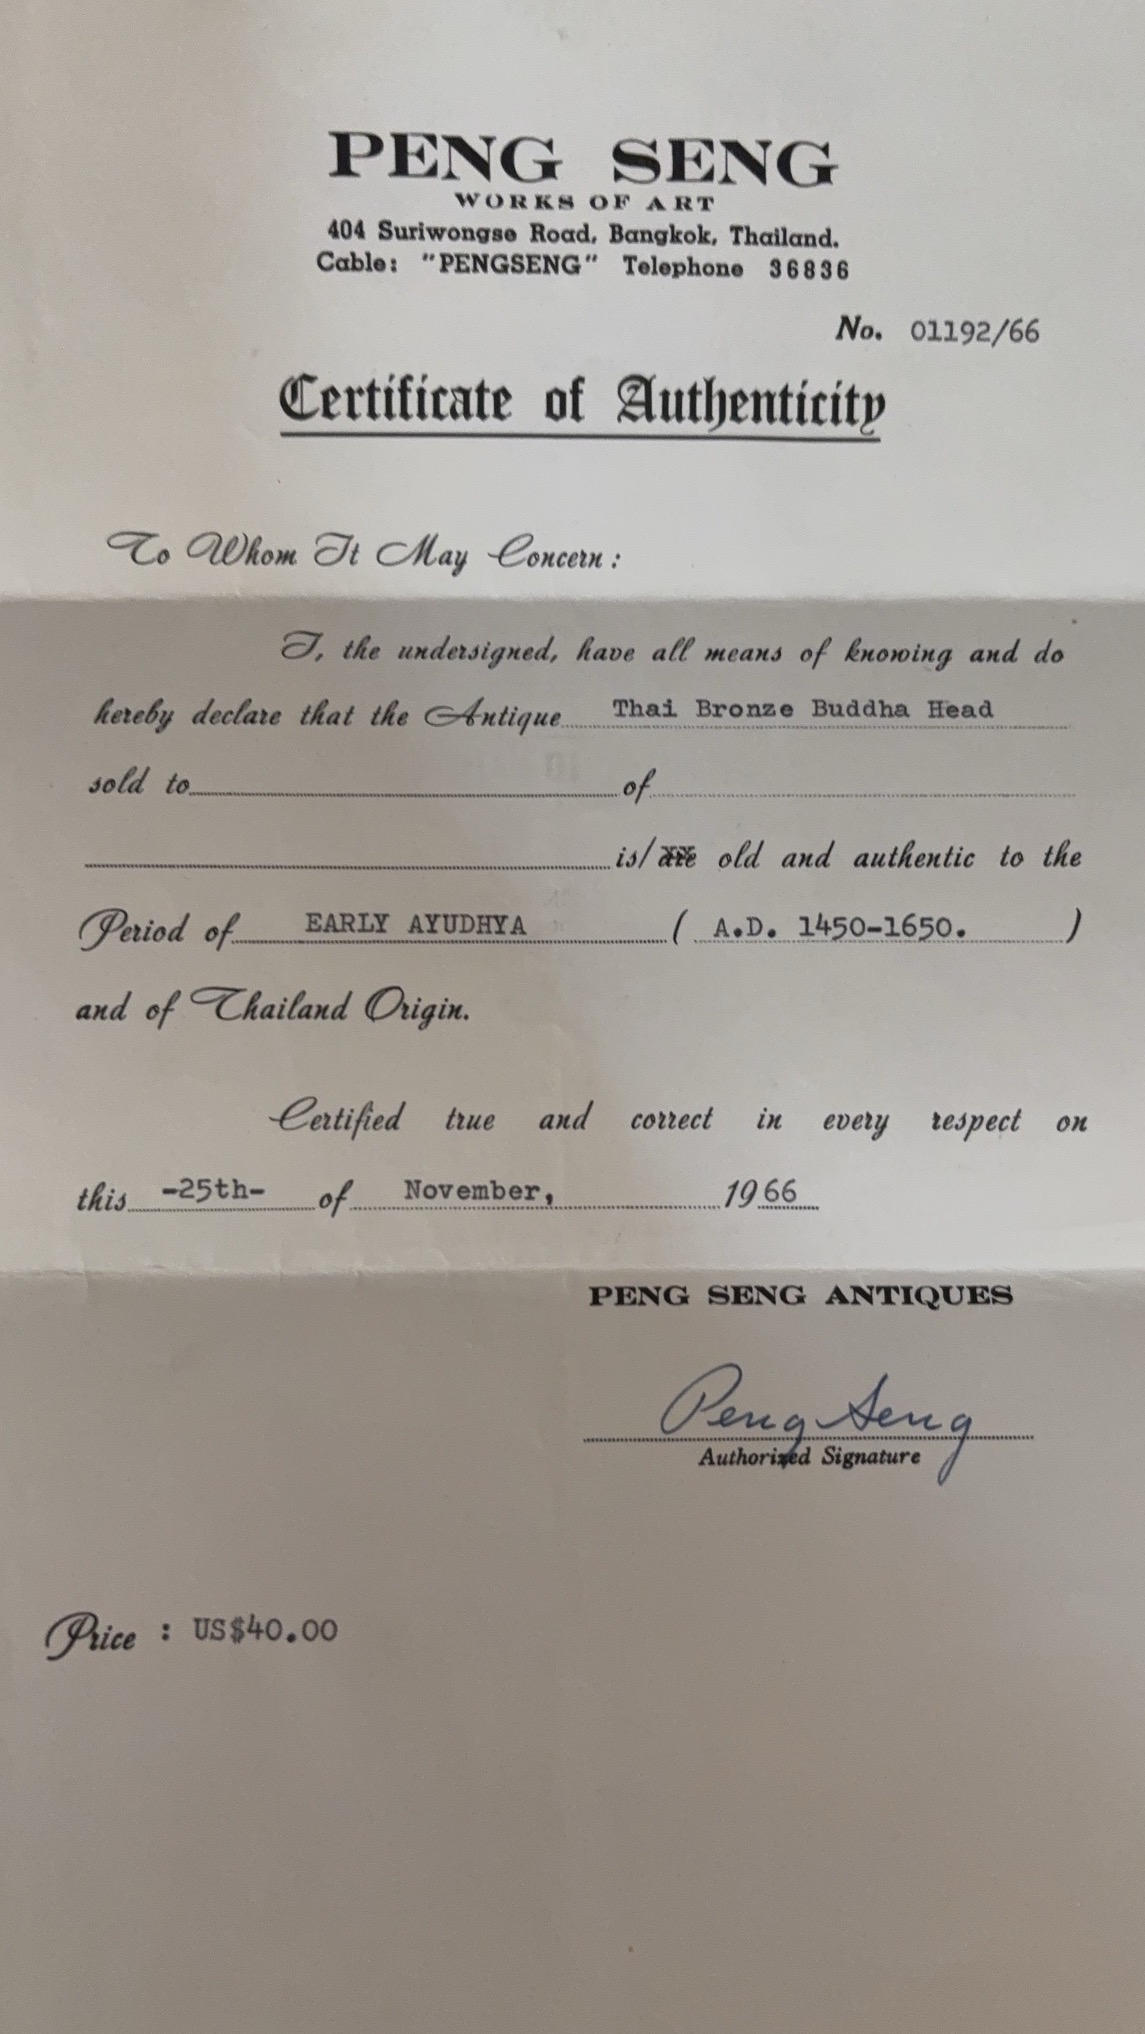 PENG SENG
WORKS OF ART
404 Suriwongse Road, Bangkok, Thailand.
Cable: "PENGSENG" Telephone 36836
No. 01192/66
Certificate of Authenticity
To Whom It May Concern:
I, the undersigned, have all means of knowing and do
hereby declare that the Antique Thai Bronze Buddha Head
sold to of
is/are old and authentic to the
Period of EARLY AYUDHYA ( A.D. 1450-1650. )
and of Thailand Origin.
Certified true and correct in every respect on
this -25th- of November, 1966
PENG SENG ANTIQUES
Peng Seng
Authorized Signature
Price : US$40.00